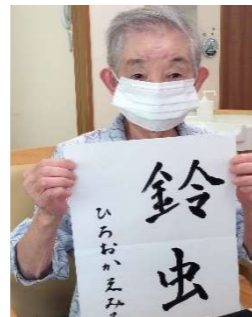 鈴虫
ひろおかえみ子